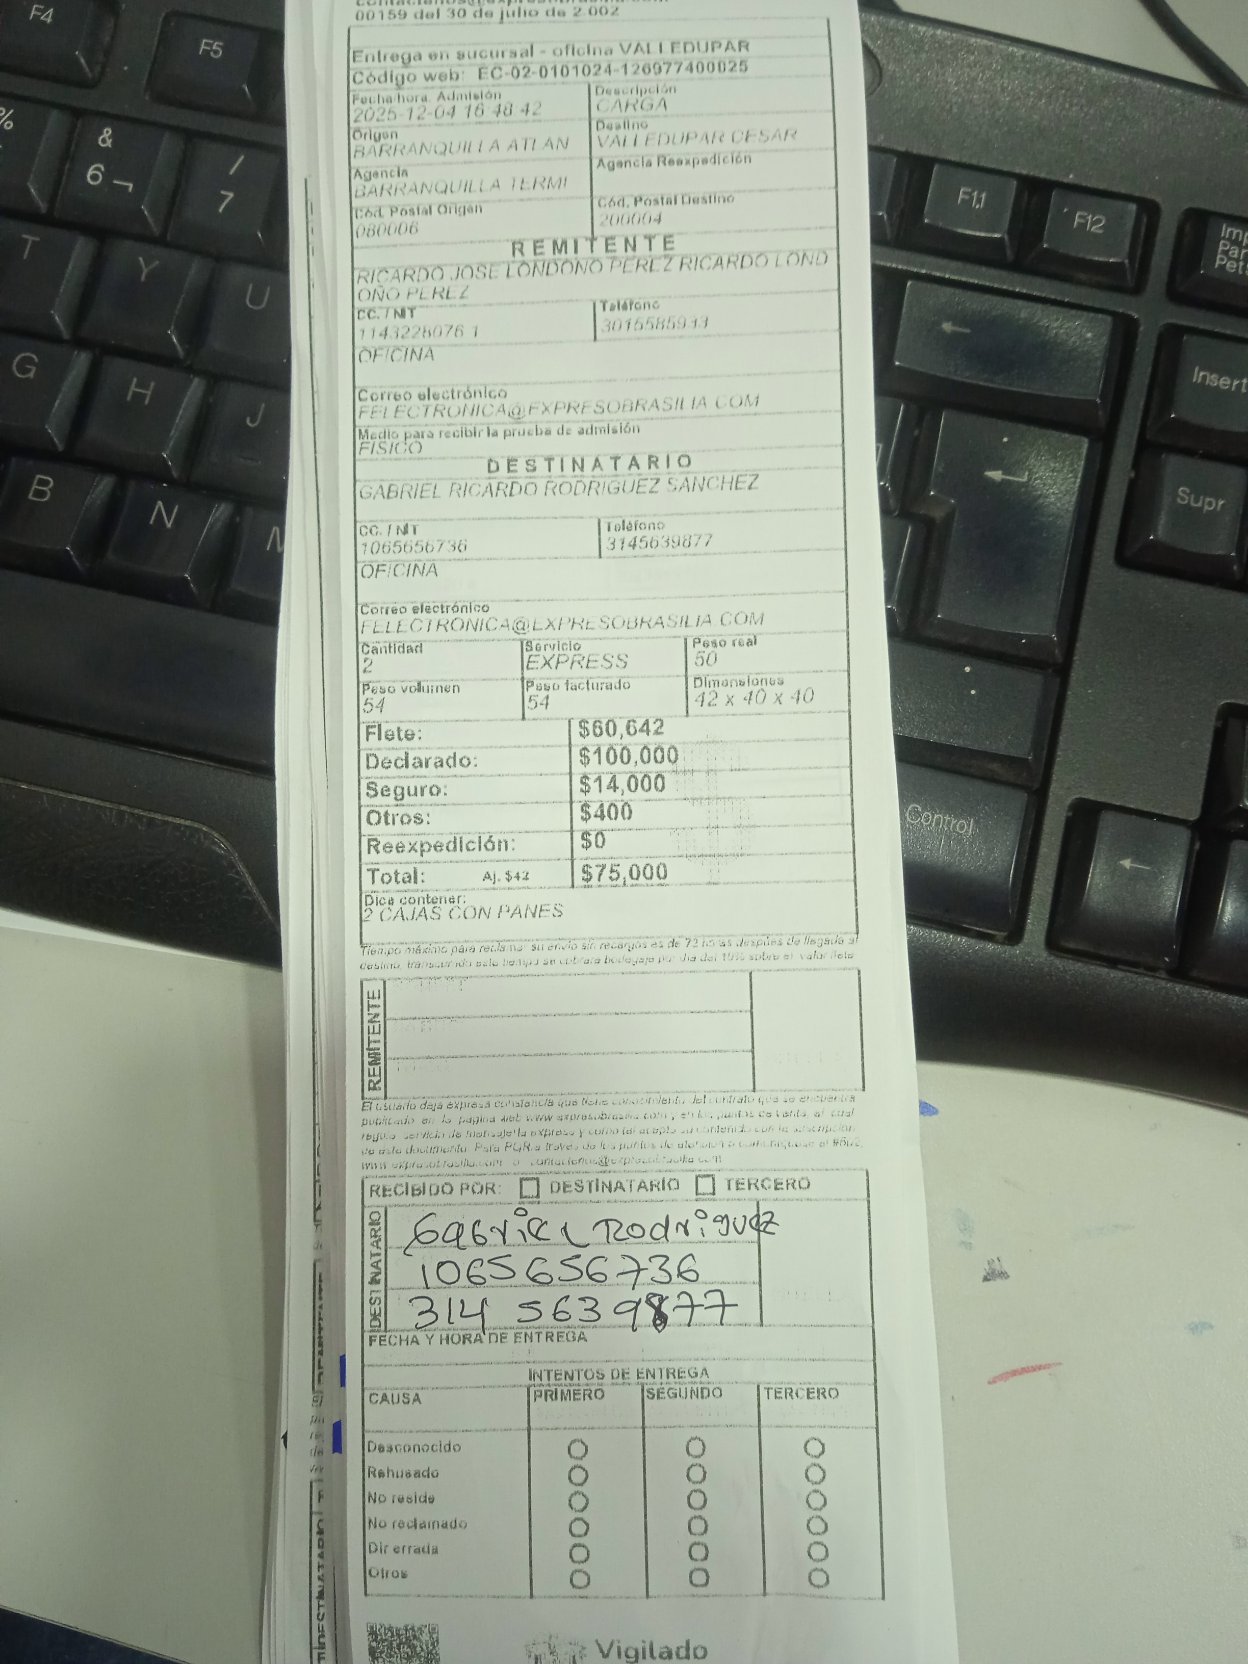 00159 del 30 de julio de 2.002
Entrega en sucursal - oficina VALLEDUPAR
Código web: EC-02-0101024-126977400825
Fecha/hora. Admisión
2025-12-04 16:48:42
Descripción
CARGA
Origen
BARRANQUILLA ATLAN
Destino
VALLEDUPAR CESAR
Agencia
BARRANQUILLA TERMI
Agencia Reexpedición
Cód. Postal Origen
080006
Cód. Postal Destino
200004
REMITENTE
RICARDO JOSE LONDOÑO PEREZ RICARDO LOND
OÑO PEREZ
CC. / NIT
1143228076 1
Teléfono
3015585933
OFICINA
Correo electrónico
FELECTRONICA@EXPRESOBRASILIA.COM
Medio para recibir la prueba de admisión
FISICO
DESTINATARIO
GABRIEL RICARDO RODRIGUEZ SANCHEZ
CC. / NIT
1065656736
Teléfono
3145639877
OFICINA
Correo electrónico
FELECTRONICA@EXPRESOBRASILIA.COM
Cantidad
2
Servicio
EXPRESS
Peso real
50
Peso volumen
54
Peso facturado
54
Dimensiones
42 x 40 x 40
Flete: $60,642
Declarado: $100,000
Seguro: $14,000
Otros: $400
Reexpedición: $0
Total: Aj. $42 $75,000
Dice contener:
2 CAJAS CON PANES
Tiempo máximo para reclamar su envío sin recargos es de 72 horas después de llegada al
destino, transcurrido este tiempo se cobrará bodegaje por día del 10% sobre el valor flete
REMITENTE
El usuario deja expresa constancia que tiene conocimiento del contrato que se encuentra
publicado en la página web www.expresobrasilia.com y en los puntos de venta, el cual
regula servicio de mensajería express y como tal acepta su contenido con la suscripción
de este documento. Para PQR a través de los puntos de atención o comuníquese al
www.expresobrasilia.com o contactenos@expresobrasilia.com
RECIBIDO POR: DESTINATARIO TERCERO
DESTINATARIO
Gabriel Rodriguez
1065656736
314 5639877
FECHA Y HORA DE ENTREGA
INTENTOS DE ENTREGA
CAUSA PRIMERO SEGUNDO TERCERO
Desconocido
Rehusado
No reside
No reclamado
Dir errada
Otros
Vigilado
F4
F5
%
&
6 ¬
/
7
T
Y
U
G
H
J
B
N
F11
F12
Imp
Pant
Pet
Insert
Supr
Control